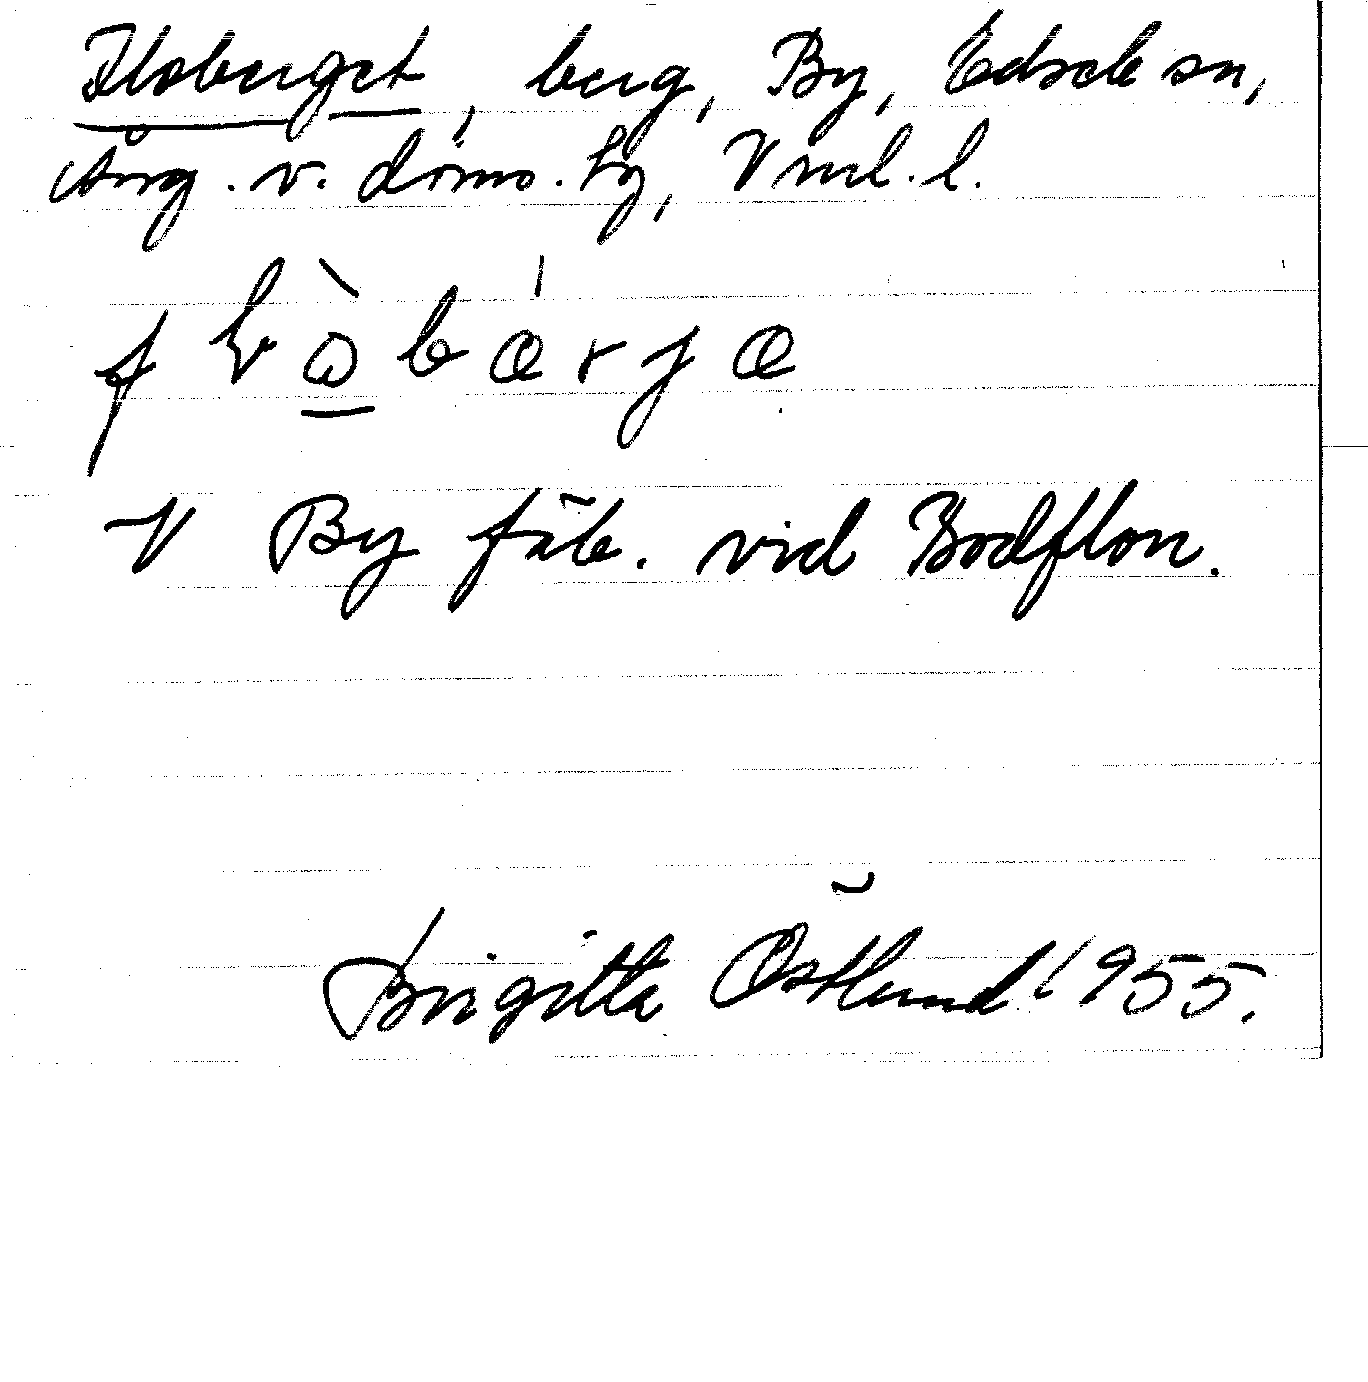 Floberget, berg, By, Edsele sn,
Ång. v. doms. hg, Vnl. l.
V By fäb. vid Bodflon.
Birgitta Östlund 1955.